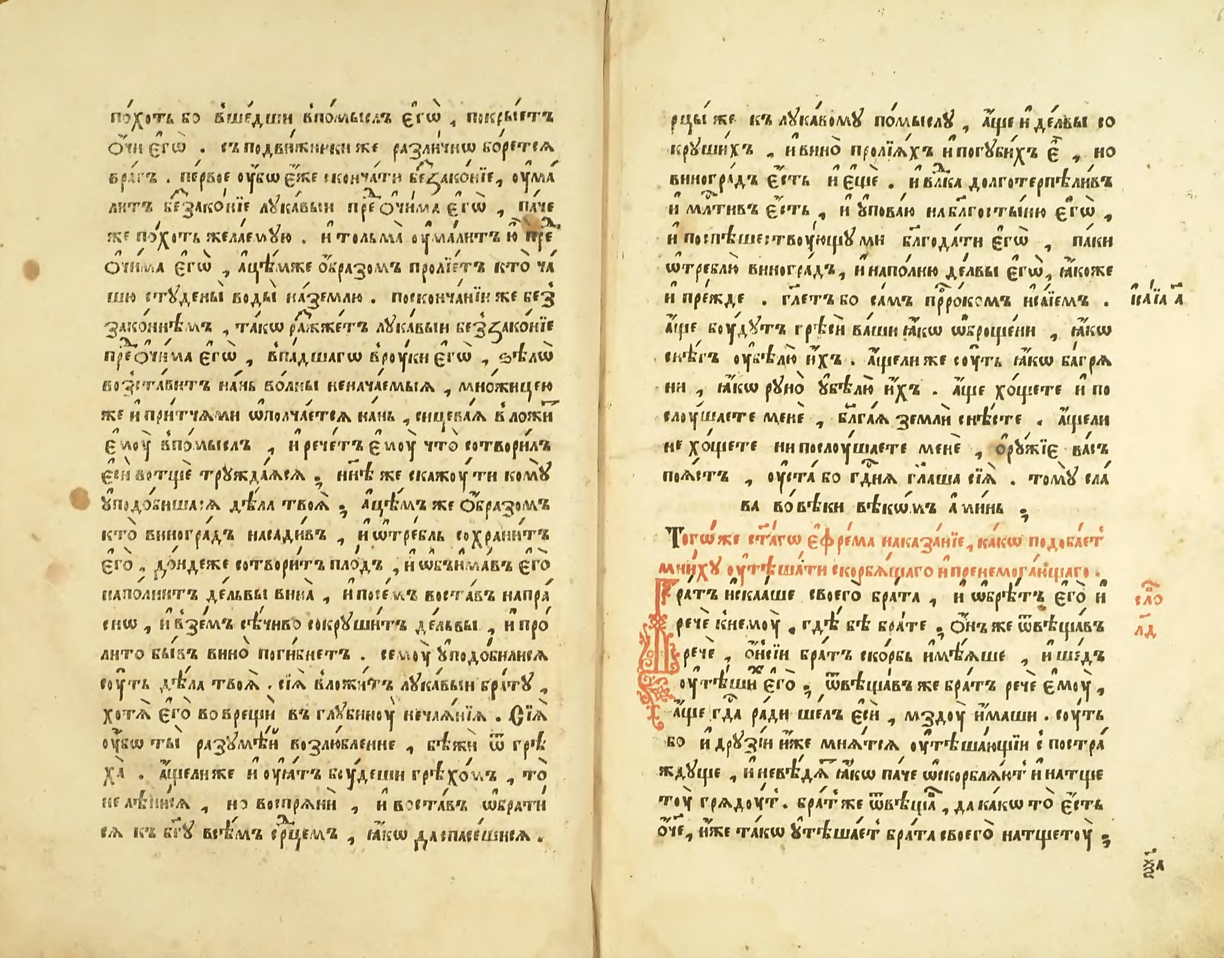 по́хоть бо вше́дши впо́мыслъ є҆гѡ̀ , покры́етъ
ѻ҆́чи є҆гѡ̀ . съподви́жники же разли́чнѡ бо́рется
вра́гъ . пе́рвое оу҆́бѡ є҆́же сконча́ти беззако́нїе , оу҆ма
ли́тъ беззако́нїе лука́выи преⷣѻ҆чи́ма є҆гѡ̀ , па́че
же по́хоть жела́емую . и то́льма оу҆мали́тъ ю҆̀ преⷣ
ѻ҆чи́ма є҆гѡ̀ , а҆цѣ́мже ѻ҆́бразомъ пролїе́тъ кто̀ ча́
шю студены̀ воды̀ на́землю . посконча́нїи же без̾
зако́ннѣмъ , та́кѡ раⷥжже́тъ лука́выи без̾зако́нїе
преⷣѻ҆чи́ма є҆гѡ̀ , впа́дшагѡ вро́уки є҆гѡ̀ , ѕѣлѡ̀
возста́витъ на́нь во́лны неча́емыя , мно́жицею
же и҆ при́тчями ѡ҆полча́ется на́нь , сицева́я вложи́
є҆моу̀ впо́мыслъ , и҆ рече́тъ є҆моу̀ что̀ сотвори́лъ
є҆сѝ вотщѐ тружда́яся ; нн҃ѣ же скажоу́ ти комꙋ̀
ᲂу҆подо́бишася дѣла̀ твоя̀ ; а҆цѣ́мъ же ѻ҆́бразомъ
кто̀ виногра́дъ насади́въ , и҆ ѡ҆тре́бль сохрани́тъ
є҆го̀ , до́ндеже сотвори́тъ пло́дъ , и҆ ѡ҆бъима́въ є҆го̀
напо́лнитъ де́львы вина̀ , и҆посе́мъ воста́въ напра́
снѡ , и҆взе́мъ сѣ́чиво сокруши́тъ де́львы , и҆ про
ли́то бы́въ вино̀ поги́бнетъ . семоу̀ уподо́билися
соу́ть дѣла̀ твоя̀ . сїя̀ вложи́тъ лука́выи бра́ту ,
хотя̀ є҆го̀ во врещѝ въ глубиноу̀ неча́янїя . Сїя̀
оу҆́бѡ ты̀ разумѣ́и возлю́бленне , бѣжѝ ѿ грѣ
ха̀ . а҆́щели же и҆ оу҆я́тъ бу́деши грѣхо́мъ , то̀
нелѣни́ся , но воспрянѝ , и҆ воста́въ ѡ҆брати́
ся къ бг҃у всѣ́мъ срⷣцемъ , ꙗ҆́кѡ да спасе́шися .
рцы́ же къ лука́вому по́мыслу , а҆́ще и҆ де́львы со
круши́хъ , и҆ вино̀ пролїя́хъ и҆ погуби́хъ є҆̀ , но
виногра́дъ є҆́сть и҆ є҆щѐ . и҆ вл҃ка долготерпѣли́въ
и҆ млⷭ҇тивъ є҆́сть , и҆ уповаю̀ на блгⷭ҇остыню є҆гѡ̀ ,
и҆ поспѣшествоу́ющу ми блг҃ода́ти є҆гѡ̀ , па́ки
ѡ҆треблю̀ виногра́дъ , и҆ напо́лню де́львы є҆гѡ̀ , ꙗ҆́коже
и҆ пре́жде . гл҃етъ бо са́мъ прⷪ҇ро́комъ и҆са́їемъ .
и҆са́їа а҃
а҆́ще боу́дутъ грѣсѝ ва́ши ꙗ҆́кѡ ѡ҆броще́ни , ꙗ҆́кѡ
снѣ́гъ оу҆бѣлю̀ и҆́хъ . а҆́щели же соу́ть ꙗ҆́кѡ багря
ни , ꙗ҆́кѡ руно̀ убѣлю̀ и҆́хъ . а҆́ще хо́щете и҆ по
слоу́шаете менѐ , блг҃а́я землѝ снѣ́сте . а҆́щели
не хо́щете ни послоу́шаете менѐ , ѻ҆ру́жїе ва́съ
поя́стъ , оу҆ста̀ бо гдⷭ҇ня гл҃аша сїя̀ . тому̀ сла́
ва во вѣ́ки вѣкѡ́мъ а҆ми́нь ;
Тогѡ́же ст҃а́гѡ є҆фре́ма наказа́нїе , ка́кѡ подоба́етъ
мни́ху оу҆тѣша́ти скорбя́щаго и҆ пренемога́ющаго .
Бра́тъ и҆ска́аше своего̀ бра́та , и҆ ѡ҆брѣ́тъ є҆го̀ и҆
сло́
л҃д
речѐ кнемоу̀ , гдѣ̀ бѣ̀ бра́те ; ѻ҆́нъ же ѿвѣща́въ
речѐ , ѻ҆нси́и бра́тъ ско́рбь и҆мѣ́яше , и҆ ше́дъ
оу҆тѣши́хъ є҆го̀ ; ѿвѣща́въ же бра́тъ речѐ є҆моу̀ ,
а҆́ще гдⷭ҇а ра́ди ше́лъ є҆сѝ , мздоу̀ и҆́маши . соу́ть
бо и҆ друзі́и и҆́же мня́тся оу҆тѣша́ющїи с постра́
ждуще , и҆ невѣ́дяⷮ ꙗ҆́кѡ па́че ѡ҆скорбля́ютъ и҆ натще
тоу̀ гряду́тъ . бра́т же ѿвѣща̀ , да ка́кѡ то̀ є҆́сть
ѻ҆́че , и҆́же та́кѡ утѣша́етъ бра́та своего̀ натщетоу̀ ;